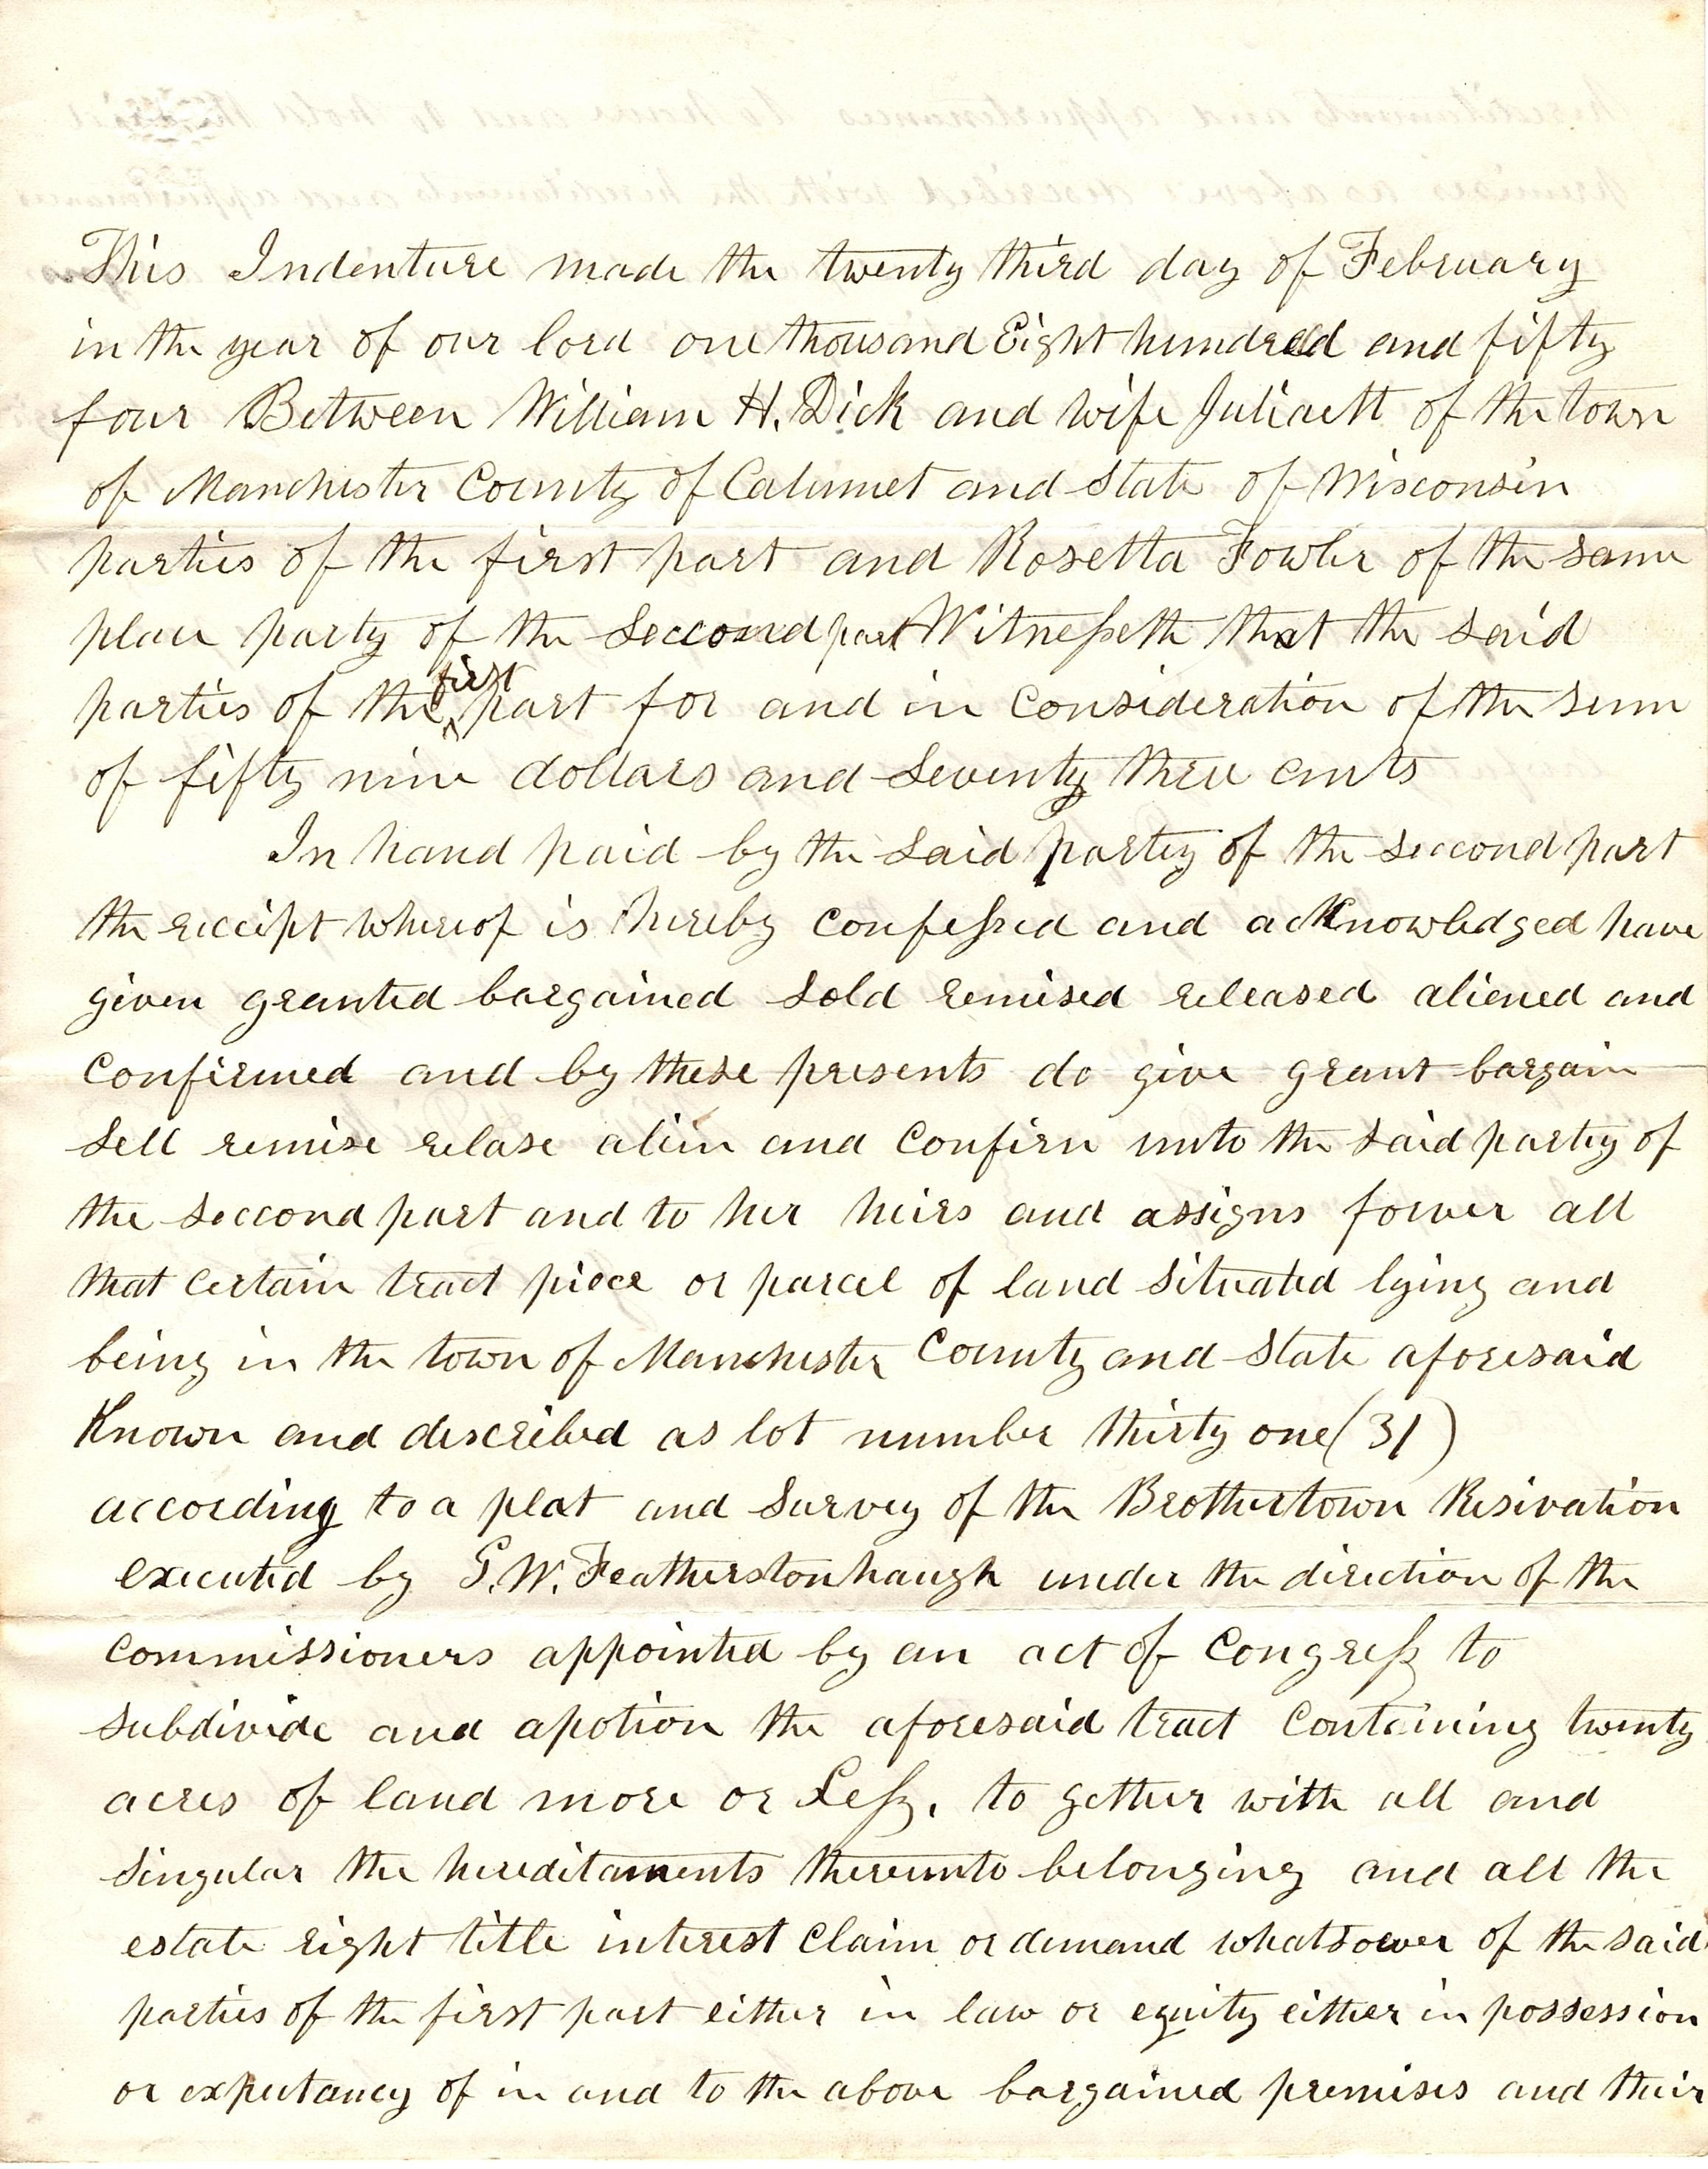 This Indenture made the twenty third day of February
in the year of our lord one thousand Eight hundred and fifty
four Between William H. Dick and wife Juliaett of the town
of Manchester County of Calumet and State of Wisconsin
parties of the first part and Rosetta Fowler of the same
place party of the seccond part Witnesseth that the said
parties of the first part for and in consideration of the sum
of fifty nine dollars and seventy three cents
In hand paid by the said party of the seccond part
the receipt whereof is hereby confessed and acknowledged have
given granted bargained sold remised released aliened and
confirmed and by these presents do give grant bargain
sell remise relase alien and confirm unto the said party of
the seccond part and to her heirs and assigns forver all
that certain tract piece or parcel of land situated lying and
being in the town of Manchester County and State aforesaid
Known and described as lot number thirty one (31)
according to a plat and survey of the Brothertown Resivation
executed by G.W. Featherstonhaugh under the direction of the
commissioners appointed by an act of Congress to
subdivide and apotion the aforesaid tract containing twenty
acres of land more or Less. to gether with all and
singular the hereditaments thereunto belonging and all the
estate right title interest claim or demand whatsoever of the said
parties of the first part either in law or equity either in possession
or expectancy of in and to the above bargained premises and their